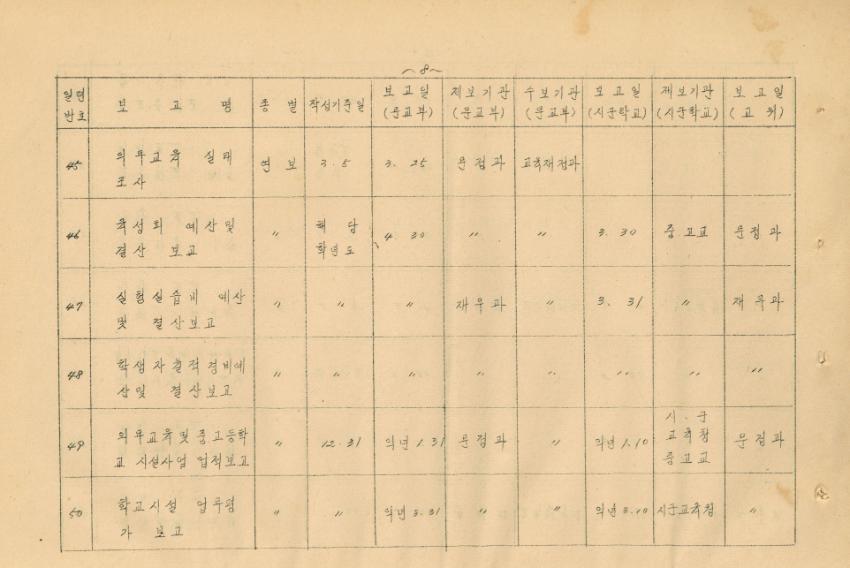 -8-
일련 번호 보고명 종별 작성기준일 보고일 (문교부) 제보기관 (문교부) 수보기관 (문교부) 보고일 (시군학교) 제보기관 (시군학교) 보고일
45 의무교육 실태 연보 3.5 3.25 문정과 교육재정과
조사
46 육성회 예산및 〃 해당 4.30 〃 〃 3.30 중고교 문정과
결산 보고 학년도
47 실험실습비 예산 〃 〃 〃 재무과 〃 3.31 〃 재무과
및 결산보고
48 학생자율적경비예 〃 〃 〃 〃 〃 〃 〃 〃
산및 결산보고
49 의무교육및중고등학 〃 12.31 익년1.31 문정과 〃 익년1.10 시.군 교육청 중고교 문정과
교 시설사업 업적보고
50 학교시설 업무평 〃 〃 익년3.31 〃 〃 익년3.10 시군교육청 〃
가 보고